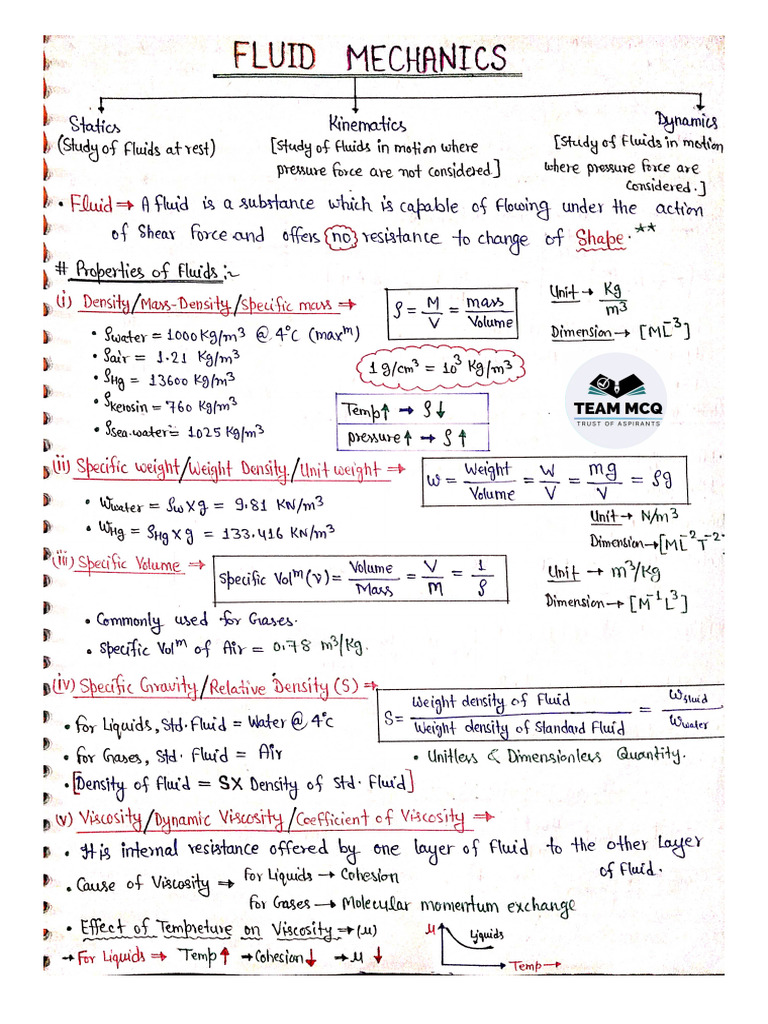 FLUID MECHANICS
Statics
(Study of Fluids at rest)
Kinematics
[Study of Fluids in motion where
pressure force are not considered]
Dynamics
[Study of Fluids in motion
where pressure force are
considered.]
• Fluid ⇒ A fluid is a substance which is capable of flowing under the action
of Shear force and offers no resistance to change of Shape. **
# Properties of Fluids :-
(i) Density/Mass-Density/Specific mass ⇒
ρ = M/V = mass/Volume
Unit → Kg/m³
Dimension → [ML⁻³]
• ρwater = 1000 Kg/m³ @ 4°C (maxᵐ)
• ρair = 1.21 Kg/m³
• ρHg = 13600 Kg/m³
• ρkerosin = 760 Kg/m³
• ρsea.water = 1025 Kg/m³
1 g/cm³ = 10³ Kg/m³
Temp↑ → ρ↓
pressure↑ → ρ↑
TEAM MCQ
TRUST OF ASPIRANTS
(ii) Specific weight/Weight Density/Unit weight ⇒
w = Weight/Volume = W/V = mg/V = ρg
• wwater = ρw×g = 9.81 KN/m³
• wHg = ρHg×g = 133.416 KN/m³
Unit → N/m³
Dimension → [ML⁻²T⁻²
(iii) Specific Volume ⇒
Specific Volᵐ(v) = Volume/Mass = V/m = 1/ρ
Unit → m³/Kg
Dimension → [M⁻¹L³]
• Commonly used for Gases.
• Specific Volᵐ of Air = 0.78 m³/Kg.
(iv) Specific Gravity/Relative Density (S) ⇒
S = Weight density of Fluid/Weight density of Standard Fluid = Wfluid/Wwater
• for Liquids, Std. Fluid = Water @ 4°C
• for Gases, Std. Fluid = Air
• Unitless & Dimensionless Quantity.
• [Density of fluid = S× Density of Std. Fluid]
(v) Viscosity/Dynamic Viscosity/Coefficient of Viscosity ⇒
• It is internal resistance offered by one layer of Fluid to the other Layer
of Fluid.
• Cause of Viscosity ⇒ for Liquids → Cohesion
for Gases → Molecular momentum exchange
• Effect of Tempreture on Viscosity ⇒ (μ)
→ For Liquids ⇒ Temp↑ → Cohesion↓ → μ↓
μ↑
Liquids
→ Temp →